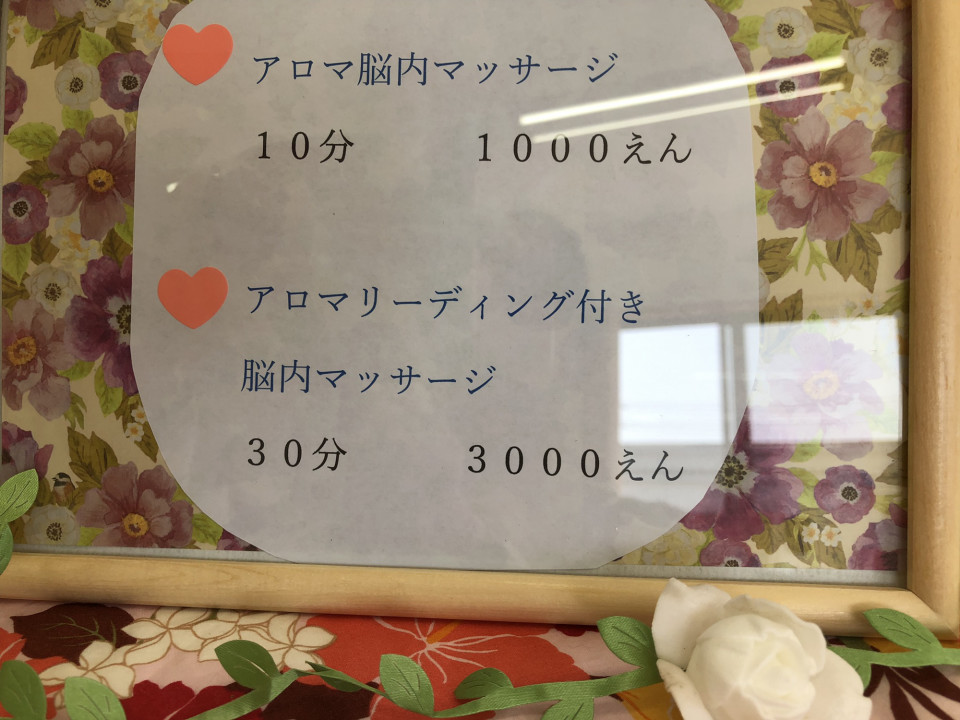 アロマ脳内マッサージ
１０分　１０００えん
アロマリーディング付き
脳内マッサージ
３０分　３０００えん